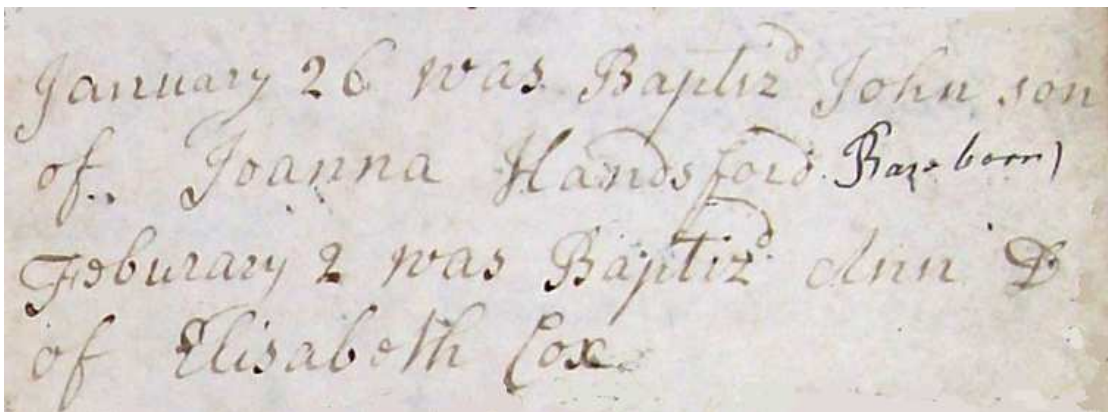 January 26 was Baptizd John son
of Joanna Handsford Base born
Feburary 2 was Baptizd Ann D
of Elisabeth Cox